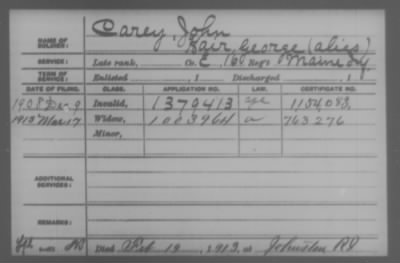 Carey, John
NAME OF SOLDIER: Kair, George (alias)
SERVICE: Late rank, Co. E, 16 Reg't Maine Inf
TERM OF SERVICE: Enlisted , 1 Discharged , 1
DATE OF FILING. CLASS. APPLICATION NO. LAW. CERTIFICATE NO.
1908 Invalid, 1370413 age 1154083,
1913 Mar 17 Widow, 1003964 a 763276
Minor,
ADDITIONAL SERVICES:
REMARKS:
Died Feb 19, 1913, at Johnston RI